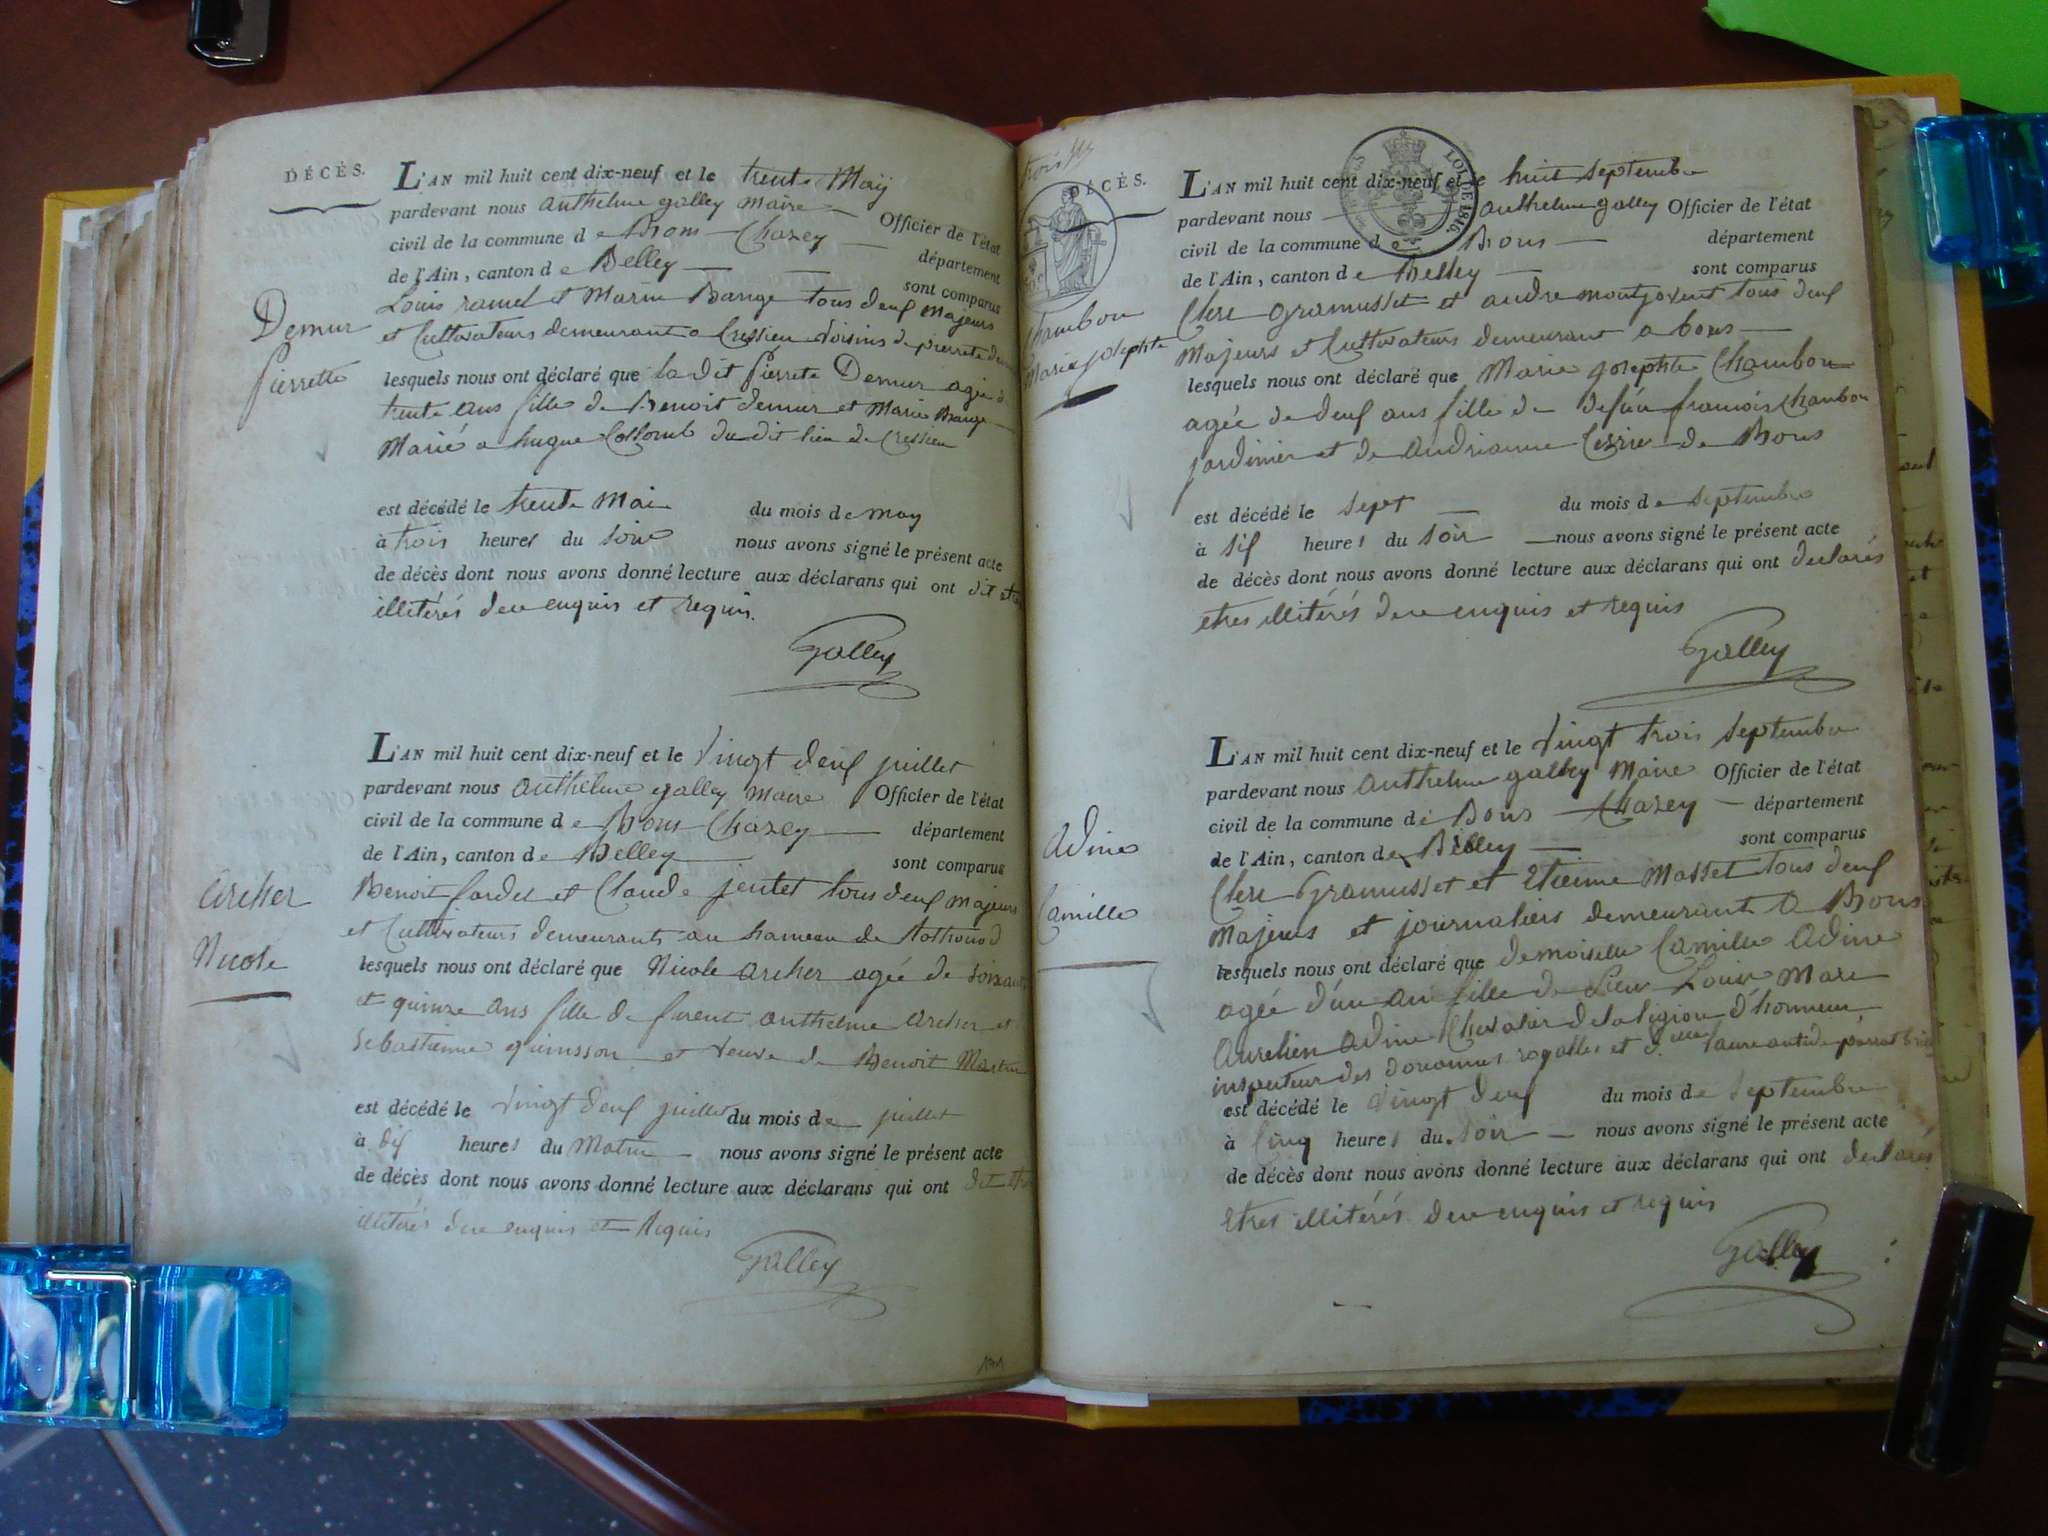 DÉCÈS.
L'AN mil huit cent dix-neuf et le trente May
pardevant nous anthelme galley maire Officier de l'état
civil de la commune de Bons Chazey département
de l'Ain, canton de Belley sont comparus
Louis ramel et Marin Bange tous deux majeurs
et Cultivateurs demeurant a Cressieu voisins de pierrete
Demur
Pierrette
lesquels nous ont déclaré que la dit Pierrete Demur agée de
trente ans fille de Benoit demur et Marie Bange
Marié a hugue Collomb du dit lieu de Cressieu
est décédé le trente Mai du mois de may
à trois heures du soir nous avons signé le présent acte
de décès dont nous avons donné lecture aux déclarans qui ont dit etre
illitérés de ce enquis et requis.
Galley
L'AN mil huit cent dix-neuf et le Vingt deux juillet
pardevant nous anthelme galley maire Officier de l'état
civil de la commune de Bons Chazey département
de l'Ain, canton de Belley sont comparus
Benoit fardel et Claude jentet tous deux majeurs
et Cultivateurs demeurants au hameau de Rothonod
Archer
Nicole
lesquels nous ont déclaré que Nicole archer agée de soixante
et quinze ans fille de furent anthelme archer et
sebastienne guinsson et veuve de Benoit Martin
est décédé le Vingt deux juillet du mois de juillet
à dix heures du Matin nous avons signé le présent acte
de décès dont nous avons donné lecture aux déclarans qui ont dit etre
illitérés de ce enquis et Requis
Galley
DÉCÈS.
LOI DE 1816
L'AN mil huit cent dix-neuf et le huit septembre
pardevant nous anthelme galley Officier de l'état
civil de la commune de Bons département
de l'Ain, canton de Belley sont comparus
Clere gramusset et andre montjovent tous deux
Majeurs et Cultivateurs demeurant a bons
Chambon
Marie josephte
lesquels nous ont déclaré que Marie josephte Chambon
agée de deux ans fille de defun francois Chambon
jardinier et de andrianne de Bons
est décédé le sept du mois de septembre
à six heures du soir nous avons signé le présent acte
de décès dont nous avons donné lecture aux déclarans qui ont declarés
etres illitérés de ce enquis et requis
Galley
L'AN mil huit cent dix-neuf et le Vingt trois septembre
pardevant nous anthelme galley Maire Officier de l'état
civil de la commune de Bons Chazey département
de l'Ain, canton de Belley sont comparus
Clere Gramusset et Etienne Masset tous deux
Majeurs et journaliers demeurant a Bons
Adine
Camille
lesquels nous ont déclaré que demoiselle Camille Adine
agée d'un an fille de Sieur Louis Marc
Aurelien Adine Chevalier de la legion d'honneur
inspecteur des douannes royalles et d.elle laure
est décédé le Vingt deux du mois de septembre
à Cinq heures du soir nous avons signé le présent acte
de décès dont nous avons donné lecture aux déclarans qui ont declarés
etres illitérés de ce enquis et requis
Galley